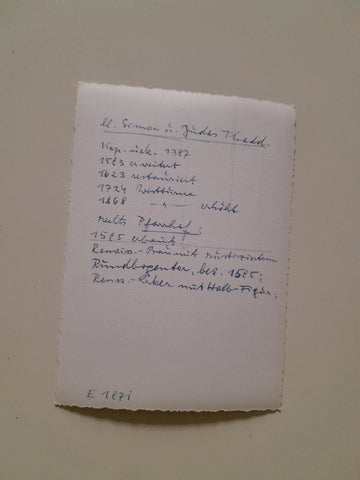 hl. Simon u. Judas Thadd.
Kap. urk. 1387
1583 erweitert
1623 restauriert
1724 Westturm
1868 —"— erhöht
rechts Pfarrhof:
1585 erbaut
Renaiss.-Bau mit rustiziertem
Rundbogentor, bez. 1585;
Renss.-Erker mit Halb-Figur;
E 187i